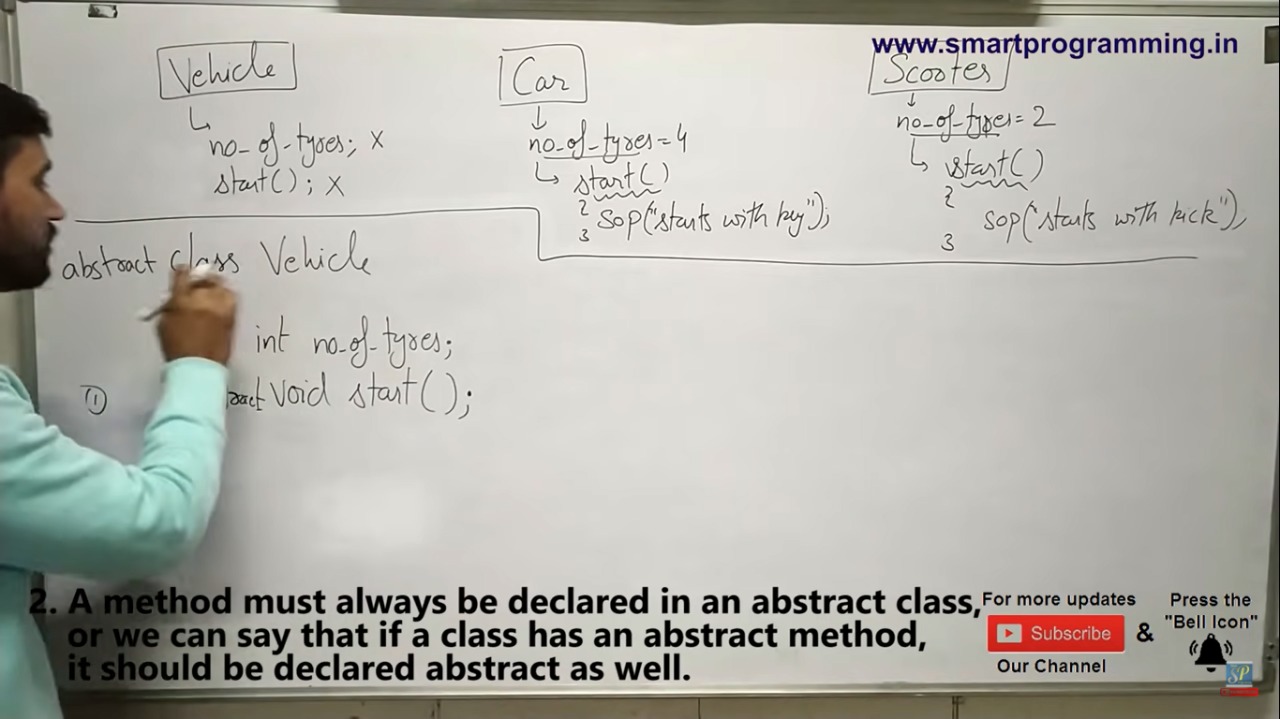 www.smartprogramming.in
Vehicle
no_of_tyres; x
start(); x
Car
no_of_tyres = 4
start()
{ sop("starts with key");
}
Scooter
no_of_tyres = 2
start()
{
sop("starts with kick");
}
abstract class Vehicle
int no_of_tyres;
① void start();
2. A method must always be declared in an abstract class,
or we can say that if a class has an abstract method,
it should be declared abstract as well.
For more updates
Subscribe
Our Channel
&
Press the
"Bell Icon"
SP